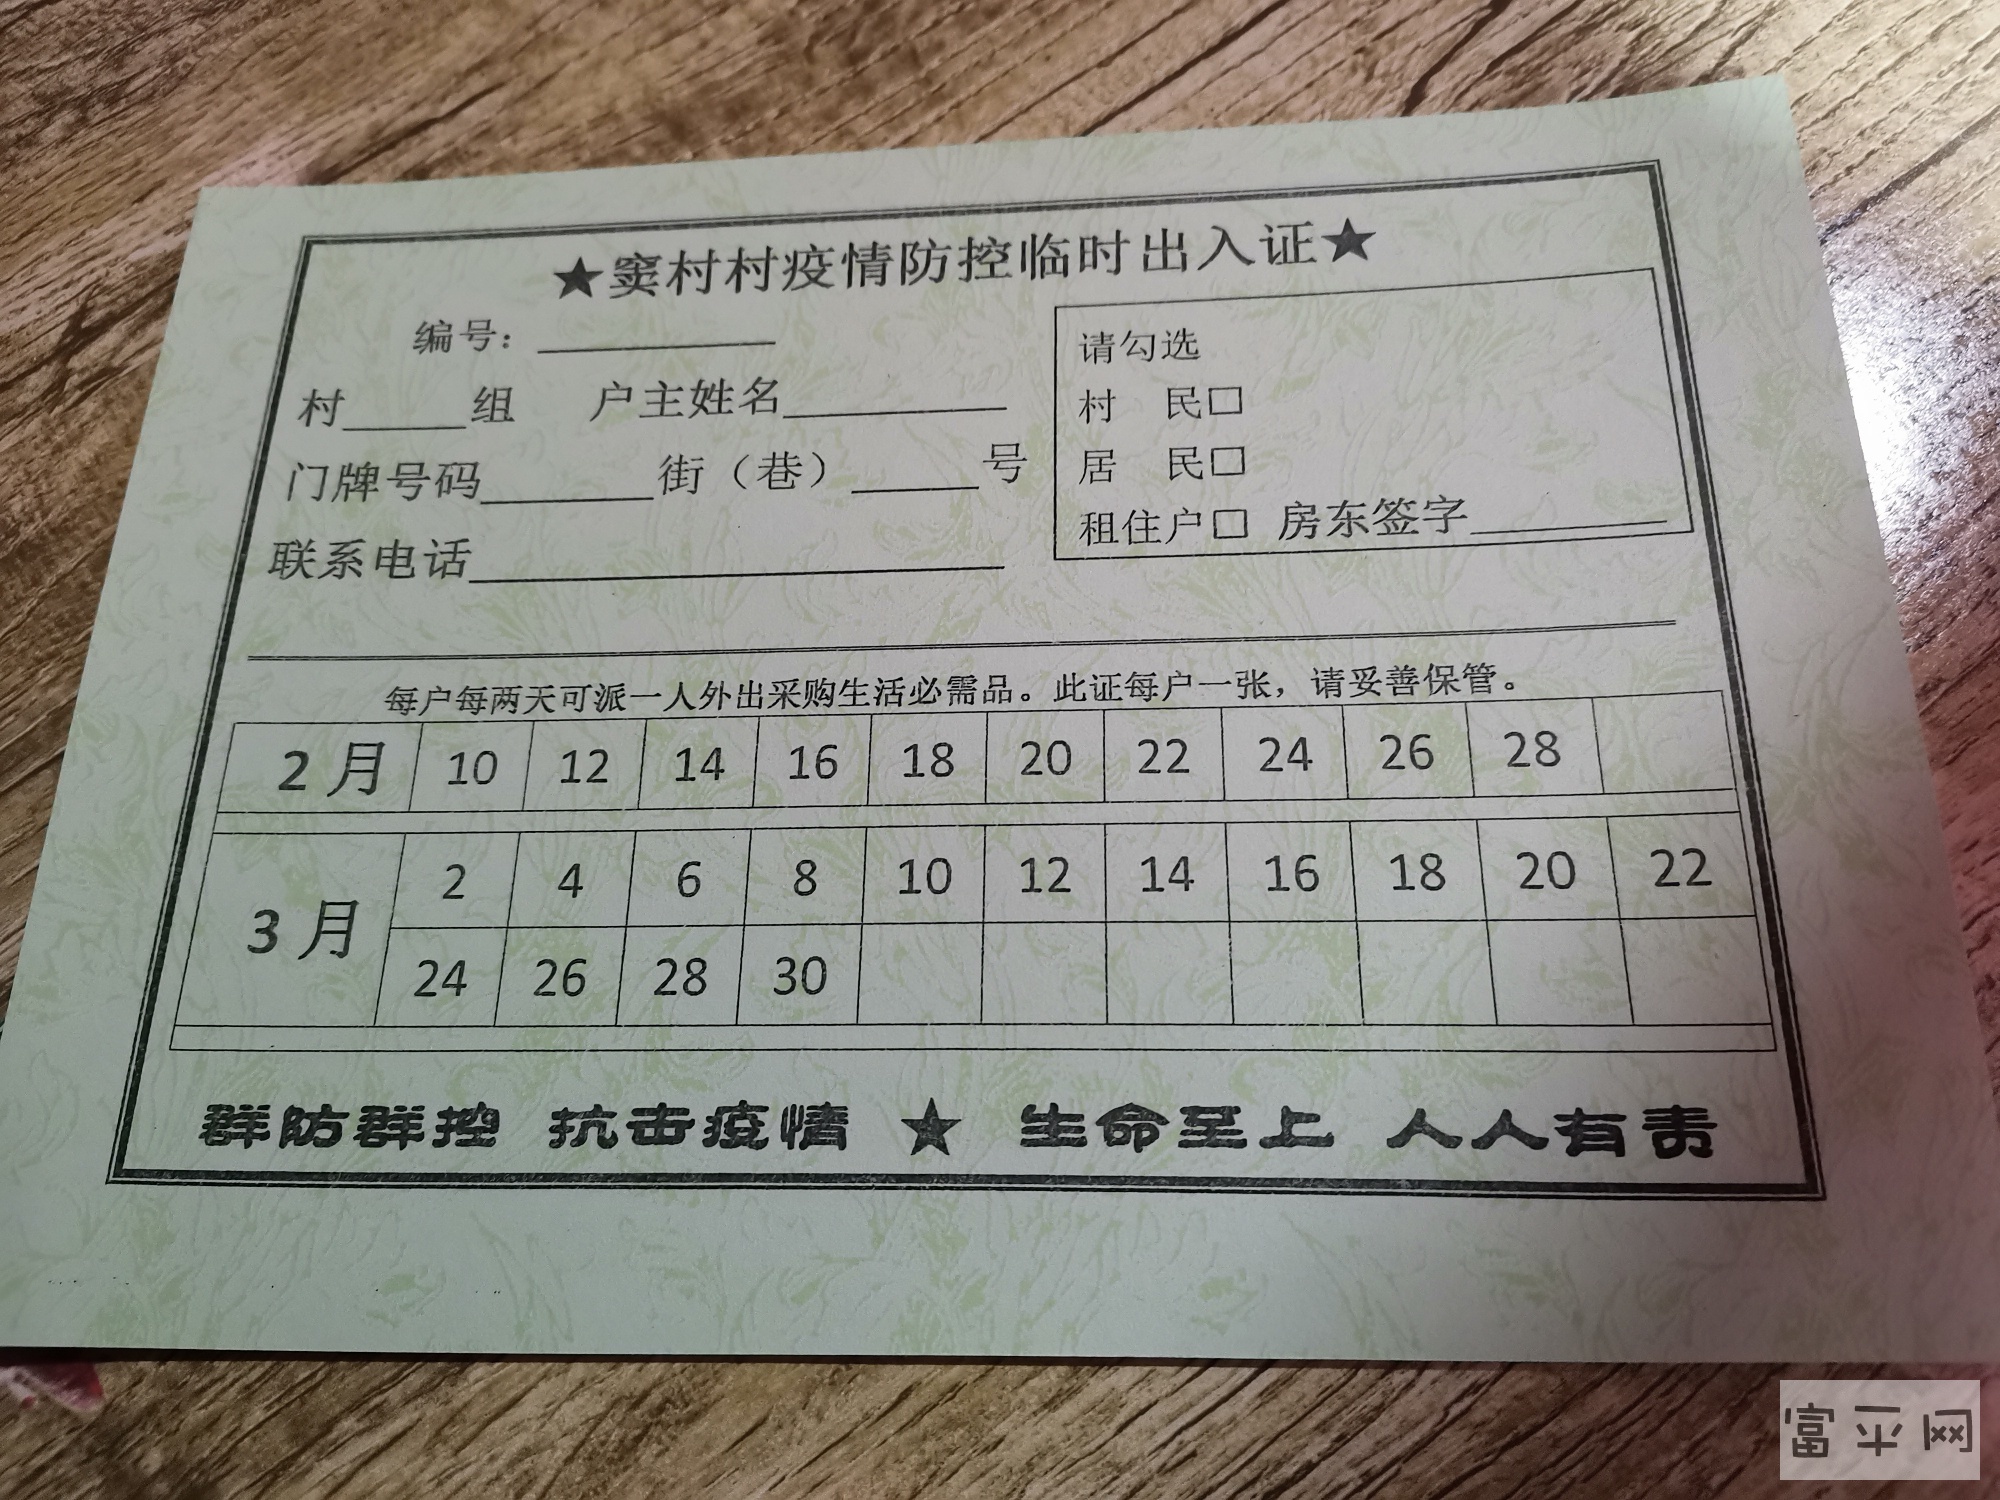 ★窦村村疫情防控临时出入证★
编号：__________
村_____组 户主姓名_________
门牌号码_______街（巷）_____号
联系电话______________________
请勾选
村 民□
居 民□
租住户□ 房东签字________
每户每两天可派一人外出采购生活必需品。此证每户一张，请妥善保管。
2月 10 12 14 16 18 20 22 24 26 28
3月 2 4 6 8 10 12 14 16 18 20 22
24 26 28 30
群防群控 抗击疫情 ★ 生命至上 人人有责
富平网